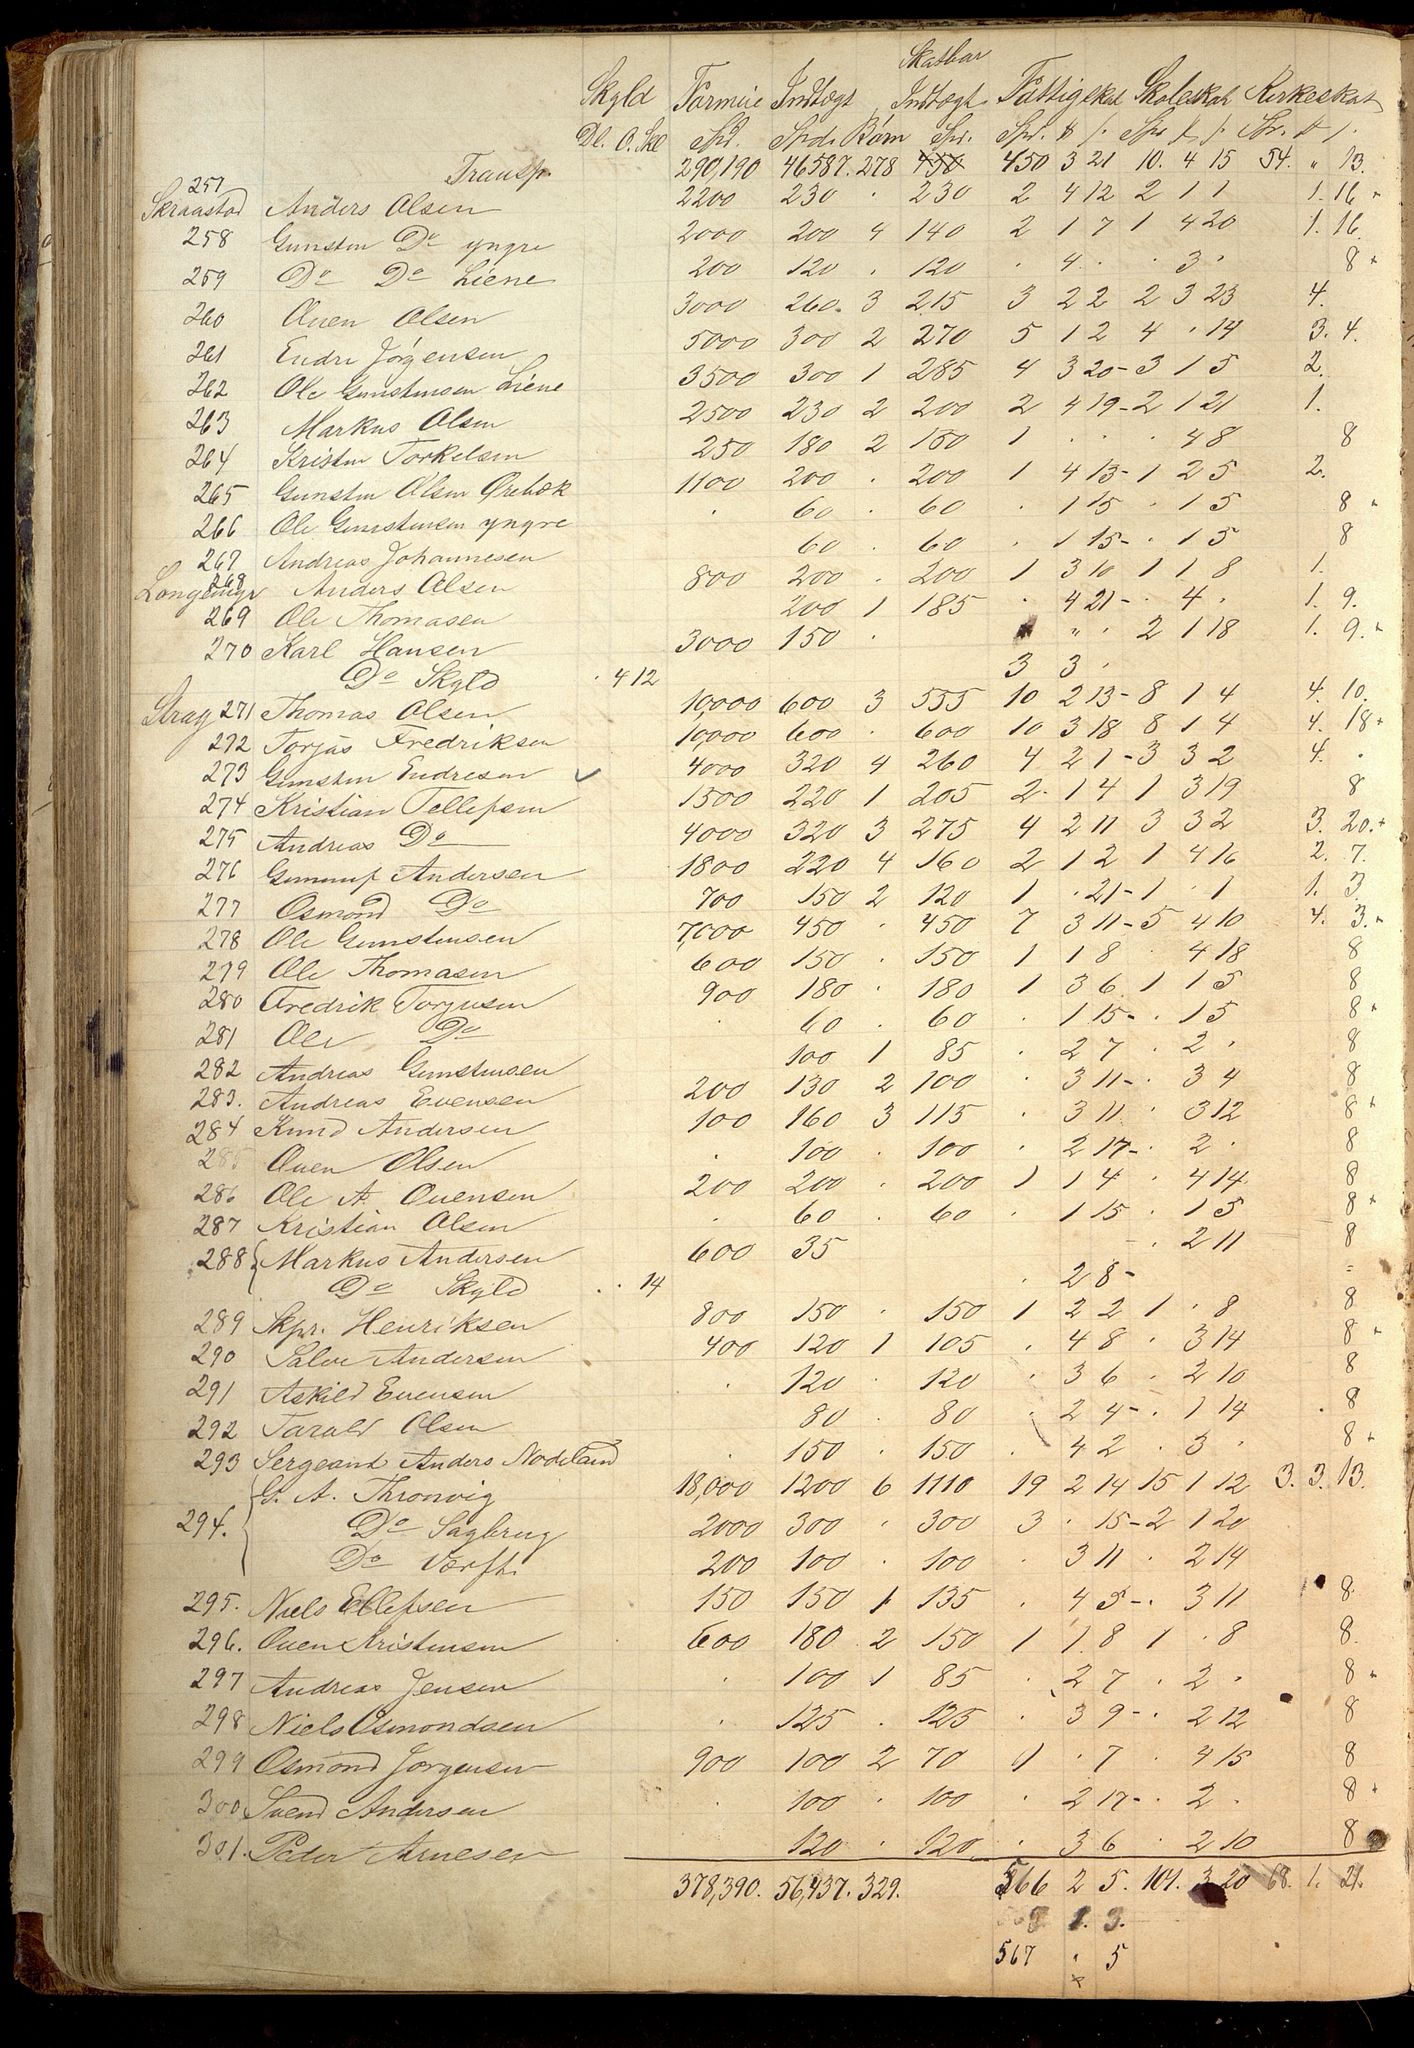 Skatbar
Skyld Formue Indtægt Indtægt Fattigskat Skoleskat Kirkeskat
Dl. O. Sk Spd. Spd. Børn Spr. Spr. ₰ /. Spr ₰ /. Spr. ₰ /.
Transp. 290,190 46587. 278 450 450 3 21 10. 4 15 54. " 13.
257
Skraastad Anders Olsen 2200 230 . 230 2 4 12 2 1 1 1. 16 "
258 Gunsten Do yngre 2000 200 4 140 2 1 7 1 4 20 1. 16.
259 Do Do Liene 200 120 . 120 . 4 . . 3 . 8 +
260 Auen Olsen 3000 260. 3 215 3 2 2 2 3 23 4.
261 Endre Jørgensen 5000 300 2 270 5 1 2 4 . 14 3. 4.
262 Ole Gunstensen Liene 3500 300 1 285 4 3 20 - 3 1 5 2.
263 Markus Olsen 2500 230 2 200 2 4 19 - 2 1 21 1.
264 Kristen Torkelsen 250 180 2 150 1 . . . 4 8 8
265 Gunsten Olsen Ørebæk 1100 200 . 200 1 4 13 - 1 2 5 2.
266 Ole Gunstensen yngre . 60 . 60 . 1 15 . 1 5 8 +
267 Andreas Johannesen 60 . 60 . 1 15 - . 1 5 8
268 Anders Olsen 800 200 . 200 1 3 10 1 1 8 1.
269 Ole Thomasen 200 1 185 . 4 21 - . 4 . 1. 9.
270 Karl Hansen 3000 150 . " . 2 1 18 1. 9. +
Do Skyld . 4 12 3 3 .
Strag 271 Thomas Olsen 10,000 600 3 555 10 2 13 - 8 1 4 4. 10.
272 Torjus Fredriksen 10,000 600 . 600 10 3 18 8 1 4 4. 18 +
273 Gunsten Endresen ✓ 4000 320 4 260 4 2 1 - 3 3 2 4. .
274 Kristian Tellefsen 1500 220 1 205 2 - 1 4 1 3 19 8
275 Andreas Do 4000 320 3 275 4 2 11 3 3 2 3. 20. +
276 Gunnuf Andersen 1800 220 4 160 2 1 2 1 4 16 2. 7.
277 Osmond Do 700 150 2 120 1 . 21 - 1 . 1 1. 3.
278 Ole Gunstensen 7,000 450 . 450 7 3 11 - 5 4 10 4. 3. +
279 Ole Thomasen 600 150 . 150 1 1 8 . 4 18 8
280 Fredrik Torgusen 900 180 . 180 1 3 6 1 1 5 8
281 Ole Do . 60 . 60 . 1 15 - . 1 5 8 +
282 Andreas Gunstensen 100 1 85 . 2 7 . 2 . 8
283. Andreas Evensen 200 130 2 100 . 3 11 - . 3 4 8
284 Knud Andersen 100 160 3 115 . 3 11 . 3 12 8 +
285 Auen Olsen . 100 . 100 . 2 17 - . 2 . 8
286 Ole A. Ouensen 200 200 . 200 1 1 4 . 4 14 8
287 Kristian Olsen . 60 . 60 . 1 15 . 1 5 8 +
288 { Markus Andersen 600 35 - . 2 11 8
Do Skyld . . 14 . 2 8 - =
289 Skpr. Henriksen 800 150 . 150 1 2 2 1 . 8 8
290 Salve Andersen 400 120 1 105 . 4 8 . 3 14 8 +
291 Askild Evensen . 120 . 120 . 3 6 . 2 10 8
292 Tarald Olsen 80 . 80 . 2 4 - . 1 14 . 8
293 Sergeant Anders Nodeland . 150 . 150 . 4 2 . 3 . 8 +
G. A. Thronvig 18,000 1200 6 1110 19 2 14 15 1 12 3. 3. 13.
294. { Do Sagbrug 2000 300 . 300 3 . 15 - 2 1 20
Do Værft. 200 100 . 100 . 3 11 . 2 14
295. Niels Ellefsen 150 150 1 135 . 4 5 - . 3 11 8.
296. Auen Kristensen 600 180 . 2 150 1 1. 8 1 . 8 8.
297 Andreas Jensen . 100 1 85 . 2 7 . 2 . 8 +
298 Niels Osmondsen . 125 . 125 . 3 9 - . 2 12 8
299 Osmond Jørgensen 900 100 2 70 1 . 7 . 4 15 8
300 Svend Andersen . 100 . 100 . 2 17 - . 2 . 8 +
301. Peder Arnesen 120 . 120 . 3 6 . 2 10 8
378,390. 56,437. 329. 566 2 5. 101. 3 20 68. 1. 21.
1. 3.
567 . 5